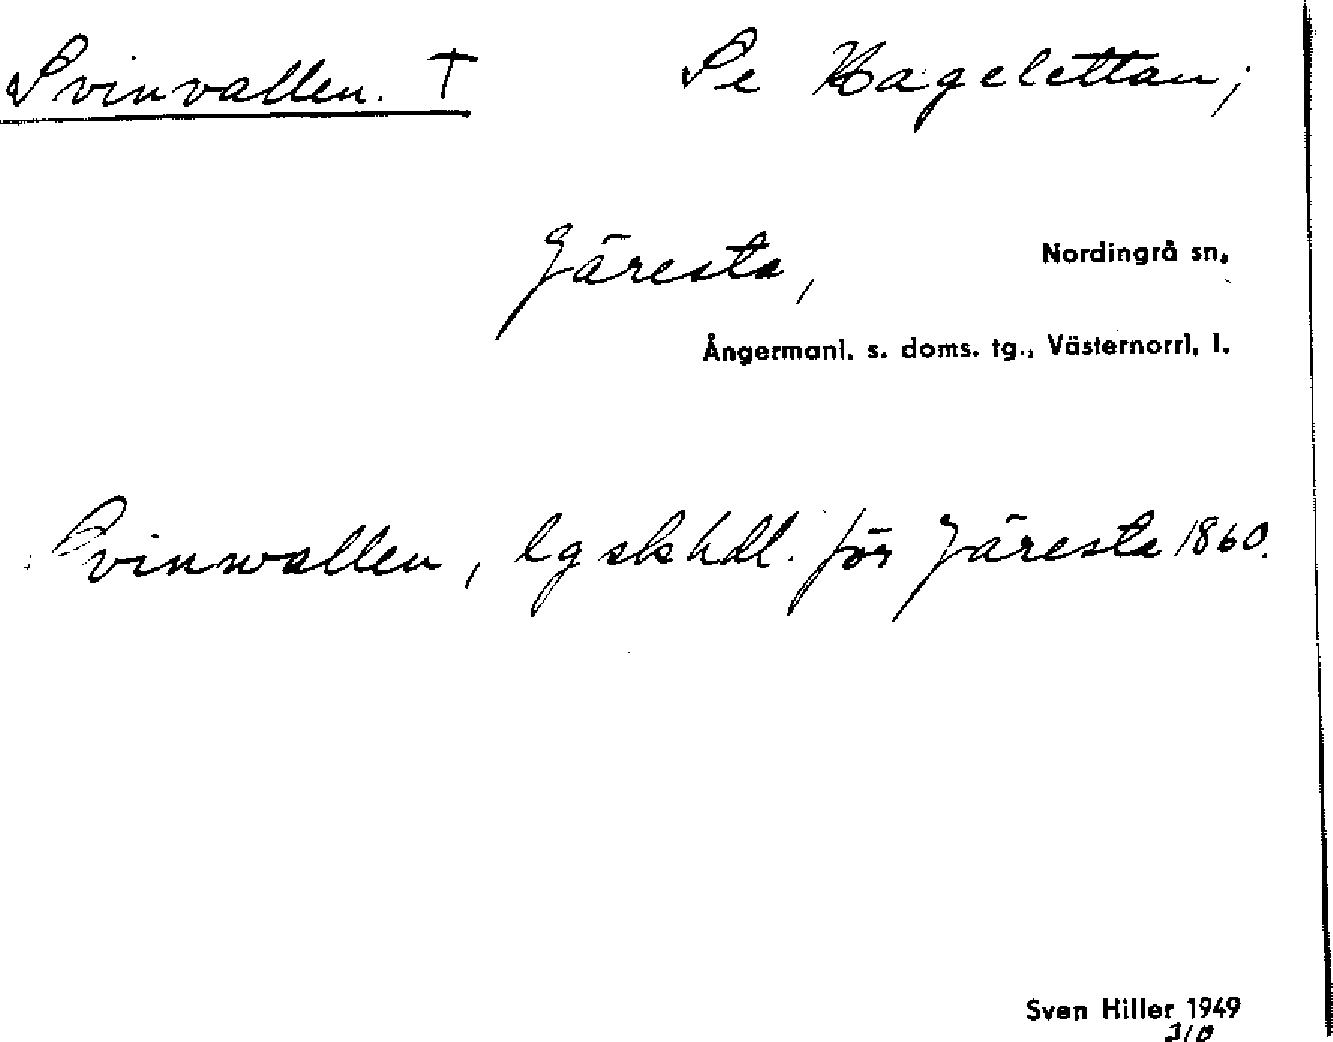 Svinvallen. † Se Hagelettan;
Järesta, Nordingrå sn,
Ångermanl. s. doms. tg., Västernorrl. l.
Svinwallen, lgskhdl. för Järesta 1860.
Sven Hiller 1949